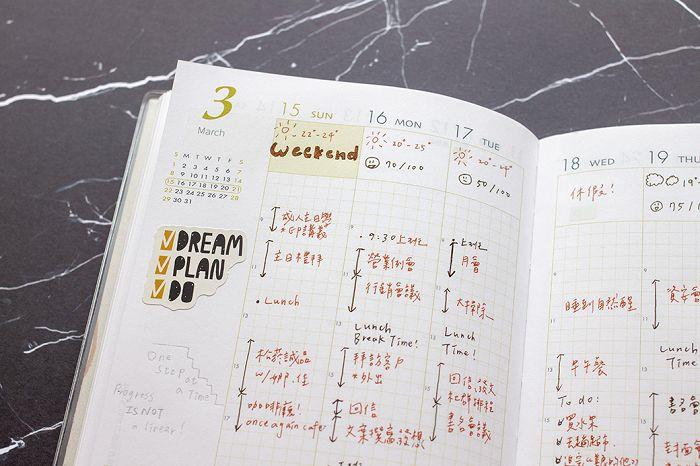 3
March
S M T W T F S
1 2 3 4 5 6 7
8 9 10 11 12 13 14
15 16 17 18 19 20 21
22 23 24 25 26 27 28
29 30 31
DREAM
PLAN
DO
One
Step at
a Time
Progress
IS NOT
a linear!
15 SUN
22°-24°
Weekend
成人主日學
主日禮拜
• Lunch
松菸誠品
咖啡廳!
once again cafe
16 MON
20°-25°
70/100
• 9:30 上班
營業例會
行銷會議
Lunch
Break Time!
拜訪客戶
*外出
回信
17 TUE
20°-24°
50/100
上班
月會
大掃除
Lunch
Time!
回信、發文
社群排程
書名會議
18 WED
休假!
睡到自然醒
早午餐
To do:
買水果
19 THU
19°-
75/1
Lunch
Time